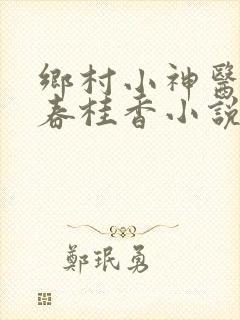 鄉村小神醫
春桂香小說
鄭珉勇